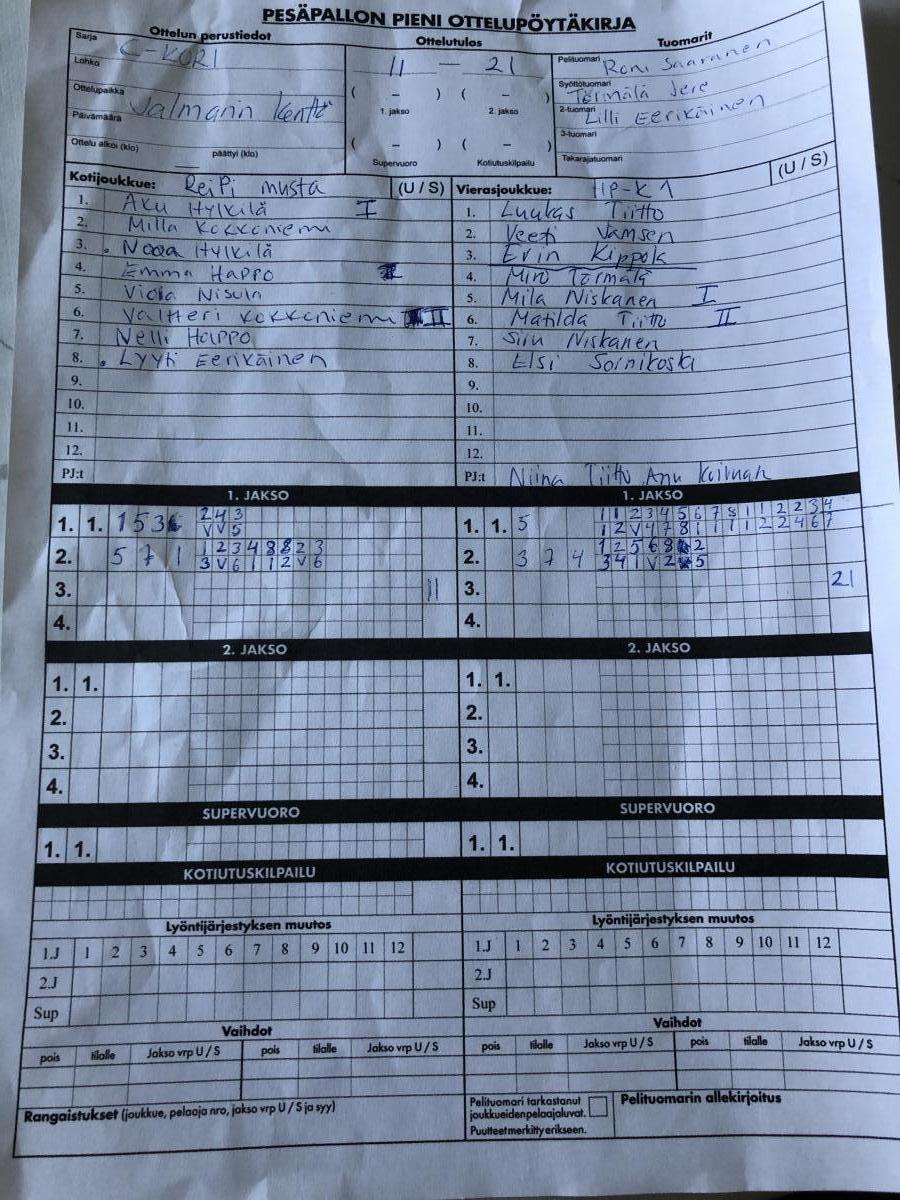 PESÄPALLON PIENI OTTELUPÖYTÄKIRJA
Ottelun perustiedot
Ottelutulos
Tuomarit
Sarja C-KORI
Lohko
Ottelupaikka Valmarin kenttä
Päivämäärä
Ottelu alkoi (klo) päättyi (klo)
11 — 21
( – ) ( – )
1. jakso 2. jakso
( – ) ( – )
Supervuoro Kotiutuskilpailu
Pelituomari Roni Saaranen
Syöttötuomari Törmälä Jere
2-tuomari Lilli Eerikäinen
3-tuomari
Takarajatuomari
Kotijoukkue: ReiPi musta (U / S)
1. Aku Hylkilä I
2. Milla Kokkoniemi
3. Nooa Hylkilä
4. Emma Happo
5. Viola Nisula
6. Valtteri Kokkoniemi II
7. Nelli Happo
8. Lyyti Eerikäinen
9.
10.
11.
12.
PJ:t
Vierasjoukkue: HP-K1 (U / S)
1. Luukas Tiitto
2. Veeti Vamsen
3. Erin Kippola
4. Miro Törmälä
5. Mila Niskanen I
6. Matilda Tiitto II
7. Siiri Niskanen
8. Elsi Sornikoski
9.
10.
11.
12.
PJ:t Niina Tiitto Anu
1. JAKSO
1. 1. 1 5 3 2 4 3
V V 5
2. 5 7 1 1 2 3 4 8 8 2 3
3 V 6 1 1 2 V 6
3. 11
4.
1. JAKSO
1. 1. 5 1 1 2 3 4 5 6 7 8 1 1 2 2 3 4
1 2 V 4 7 8 1 1 1 1 2 2 4 6 7
2. 3 7 4 1 2 5 6 8 2
3 4 1 V 2 5
3. 21
4.
2. JAKSO
1. 1.
2.
3.
4.
2. JAKSO
1. 1.
2.
3.
4.
SUPERVUORO
1. 1.
SUPERVUORO
1. 1.
KOTIUTUSKILPAILU
KOTIUTUSKILPAILU
Lyöntijärjestyksen muutos
1.J 1 2 3 4 5 6 7 8 9 10 11 12
2.J
Sup
Lyöntijärjestyksen muutos
1.J 1 2 3 4 5 6 7 8 9 10 11 12
2.J
Sup
Vaihdot
pois tilalle Jakso vrp U / S pois tilalle Jakso vrp U / S
Vaihdot
pois tilalle Jakso vrp U / S pois tilalle Jakso vrp U / S
Rangaistukset (joukkue, pelaaja nro, jakso vrp U / S ja syy)
Pelituomari tarkastanut
joukkueiden pelaajaluvat.
Puutteet merkitty erikseen.
Pelituomarin allekirjoitus